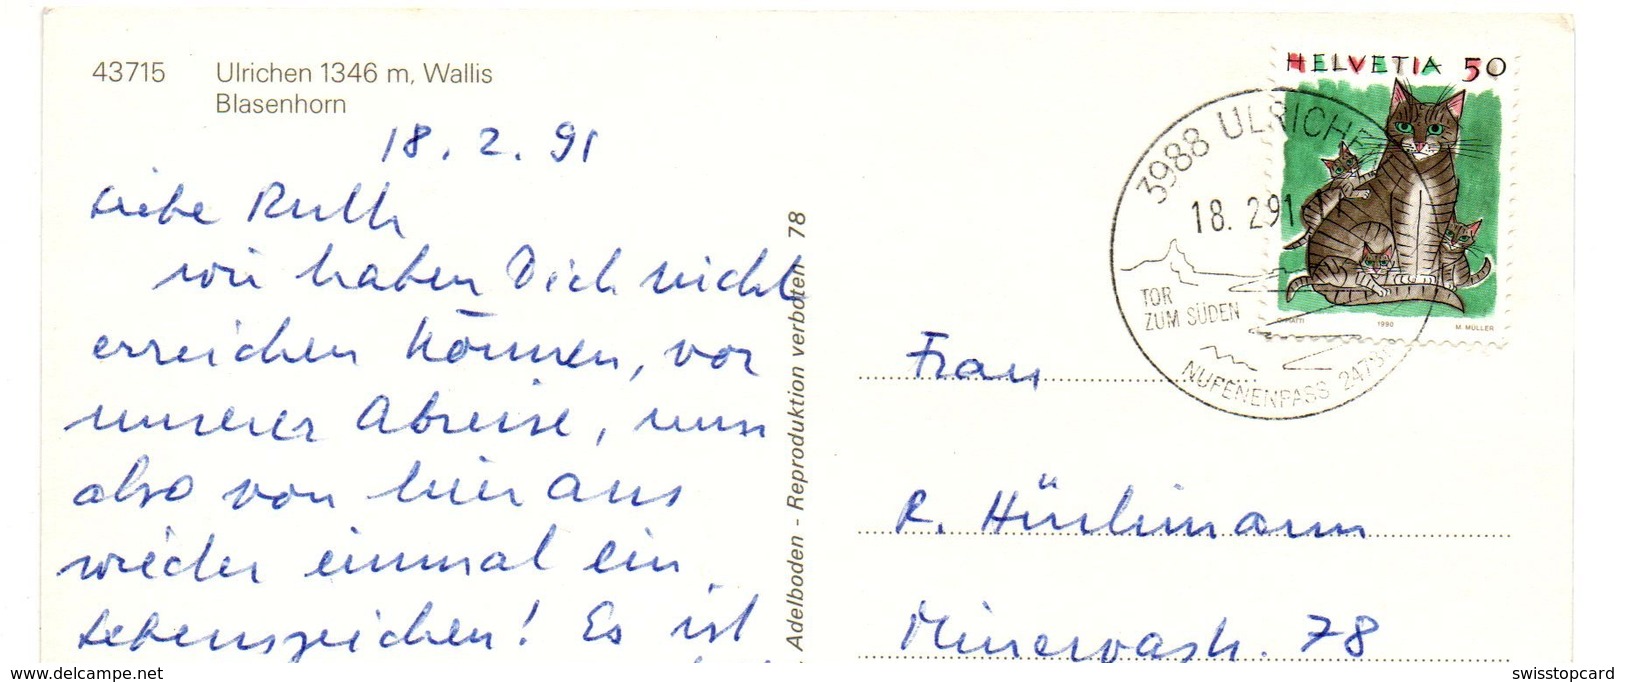 43715 Ulrichen 1346 m, Wallis
Blasenhorn
18. 2. 91
Liebe Ruth
wir haben Dich nicht
erreichen können, vor
unserer Abreise, nun
also von hier aus
wieder einmal ein
Lebenszeichen! Es ist
Adelboden - Reproduktion verboten 78
HELVETIA 50
1990 M. MÜLLER
3988 ULRICHEN
18. 2.91
TOR
ZUM SÜDEN
NUFENENPASS 2478
Frau
R. Hürlimann
Minervastr. 78
delcampe.net
swisstopcard